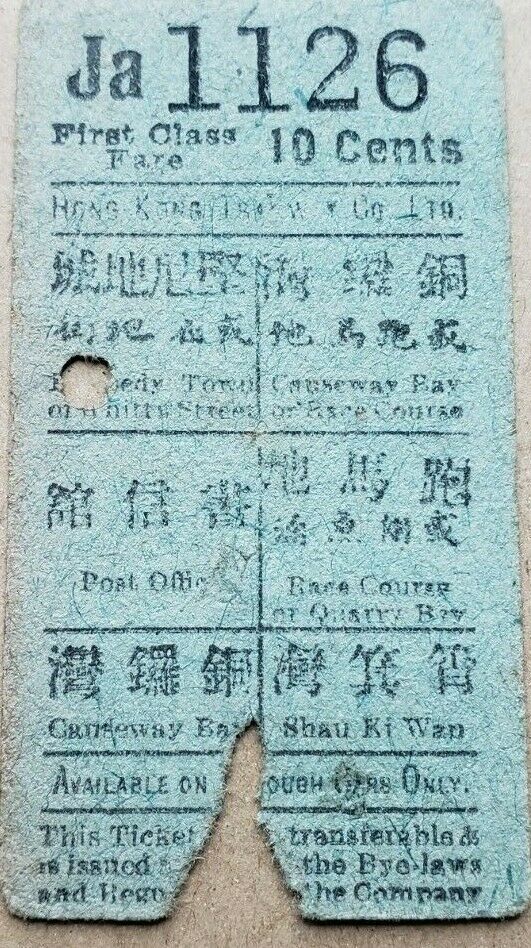 Ja 1126
First Class Fare
10 Cents
HONG KONG TRAMWAY CO. LTD.
堅尼地城
或屈地街
edy Town
or Whitty Street
銅鑼灣
或跑馬地
Causeway Bay
or Race Course
書信館
Post Offic
跑馬地
或鰂魚涌
Race Course
or Quarry Bay
銅鑼灣
Causeway Bay
筲箕灣
Shau Ki Wan
AVAILABLE ON OUGH CARS ONLY.
This Ticket transferable &
is issued the Bye-laws
and Regu the Company